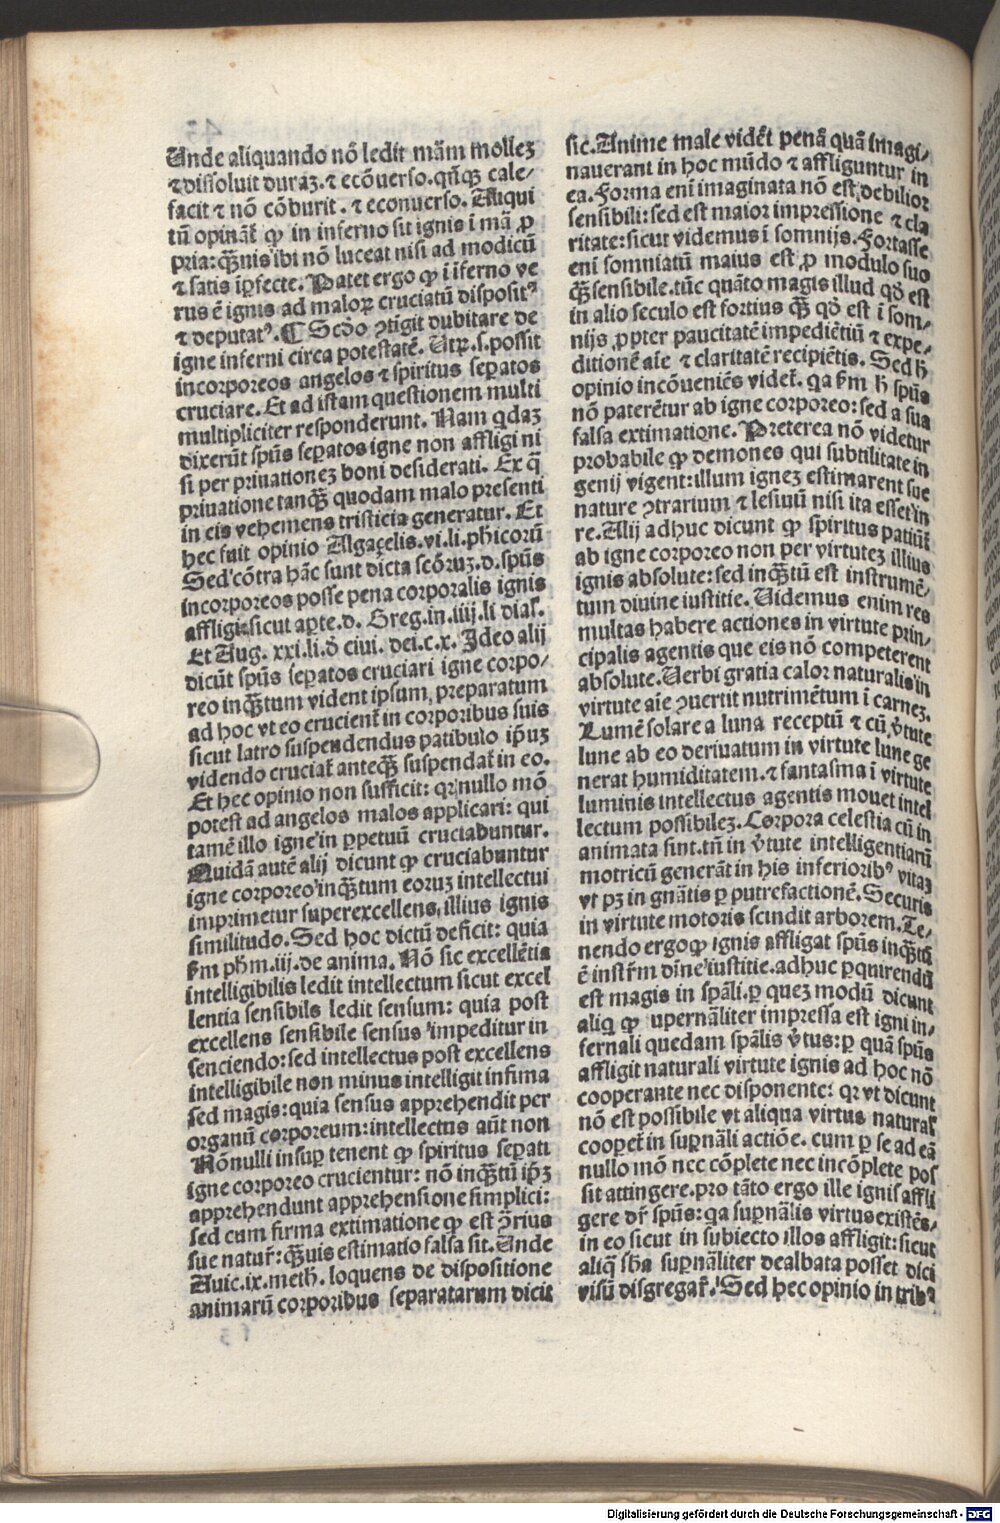 Unde aliquando nō ledit mām mollez
⁊ dissoluit duraz. ⁊ ecōuerso. qn̄qꝫ cale/
facit ⁊ nō cōburit. ⁊ econuerso. Aliqui
tū opinant᷑ ꝙ in inferno sit ignis ī mā ꝓ
pria: qꝫuis ibi nō luceat nisi ad modicū
⁊ satis īperfecte. Patet ergo ꝙ ī īferno ve
rus ē ignis ad maloꝝ cruciatū disposit⁹
⁊ deputat⁹. ¶ Scđo ꝯtīgit dubitare de
igne inferni circa potestatē. Utꝝ .s. possit
incorporeos angelos ⁊ spiritus seꝑatos
cruciare. Et ad istam questionem multi
multipliciter responderunt. Nam qdaꝫ
dixerūt spūs seꝑatos igne non affligi ni
si per priuationeꝫ boni desiderati. Ex q̄
priuatione tanqꝫ quodam malo presenti
in eis vehemens tristicia generatur. Et
hec fuit opinio Algaçelis. vi. li. phicorū
Sed cōtra hāc sunt dicta scōruꝫ. d. spūs
incorporeos posse pena corporalis ignis
affligi: sicut aꝑte. d. Greg. in. iiij. li dial.
Et Aug. xxi. li. đ ciui. dei. c. x. Ideo alij
dicūt spūs seꝑatos cruciari igne corpo/
reo inqꝫtum vident ipsum preparatum
ad hoc vt eo crucient᷑ in corporibus suis
sicut latro suspendendus patibulo ip̄uꝫ
videndo cruciat᷑ anteqꝫ suspendat᷑ in eo.
Et hec opinio non sufficit: qꝛ nullo mō
potest ad angelos malos applicari: qui
tamē illo igne in ꝑpetuū cruciabuntur.
Quidā autē alij dicunt ꝙ cruciabuntur
igne corporeo inqꝫtum eoruꝫ intellectui
imprimetur superexcellens illius ignis
similitudo. Sed hoc dictū deficit: quia
ẜm phm. iij. de anima. Nō sic excellētia
intelligibilis ledit intellectum sicut excel
lentia sensibils ledit sensum: quia post
excellens sensibile sensus impeditur in
senciendo: sed intellectus post excellens
intelligibile non minus intelligit infima
sed magis: quia sensus apprehendit per
organū corporeum: intellectus aūt non
Nōnulli insuꝑ tenent ꝙ spiritus seꝑati
igne corporeo crucientur: nō inqꝫtū ip̄ꝫ
apprehendunt apprehensione simplici:
sed cum firma extimatione ꝙ est ꝯ̄rius
sue natur᷑: qꝫuis estimatio falsa sit. Unde
Auic. ix. meth. loquens de dispositione
animarū corporibus separatarum dicit
sic. Anime male vident᷑ penā quā imagi/
nauerant in hoc mūdo ⁊ affliguntur in
ea. Forma enī imaginata nō est debilior
sensibili: sed est maior impressione ⁊ cla
ritate: sicut videmus ī somnijs. Fortasse
enī somniatū maius est ꝓ modulo suo
qꝫ sensibile. tūc quāto magis illud qđ est
in alio seculo est fortius qꝫ qđ est ī som/
nijs ꝓpter paucitatē impediētiū ⁊ expe/
ditionē aīe ⁊ claritatē recipiētis. Sed h̄
opinio incōueniēs videt᷑. qa ẜm h̄ spūs
nō paterētur ab igne corporeo: sed a sua
falsa extimatione. Preterea nō videtur
probabile ꝙ demones qui subtilitate in
genij vigent: illum igneꝫ estimarent sue
nature ꝯtrarium ⁊ lesiuū nisi ita esset in
re. Alij adhuc dicunt ꝙ spiritus patiūt᷑
ab igne corporeo non per virtuteꝫ illius
ignis absolute: sed inqꝫtū est instrumē/
tum diuine iustitie. Uidemus enim res
multas habere actiones in virtute prin/
cipalis agentis que eis nō competerent
absolute. Uerbi gratia calor naturalis in
virtute aīe ꝯuertit nutrimētum ī carneꝫ.
Lumē solare a luna receptū ⁊ cū v̄tute
lune ab eo deriuatum in virtute lune ge
nerat humiditatem. ⁊ fantasma ī virtute
luminis intellectus agentis mouet intel
lectum possibileꝫ. Corpora celestia cū in
animata sint. tū in v̄tute intelligentiarū
motricū generāt in his inferiorib⁹ vitaꝫ
vt pꝫ in gnātis ꝑ putrefactionē. Securis
in virtute motoris scindit arborem. Te/
nendo ergo ꝙ ignis affligat spūs inqꝫtū
ē instr̄m dīne iustitie. adhuc ꝑquirendū
est magis in spāli. ꝑ queꝫ modū dicunt
aliq ꝙ upernāliter impressa est igni in/
fernali quedam spālis v̄tus: ꝑ quā spūs
affligit naturali virtute ignis ad hoc nō
cooperante nec disponente: qꝛ vt dicunt
nō est possibile vt aliqua virtus natural᷑
cooperet᷑ in suꝑnāli actiōe. cum ꝑ se ad eā
nullo mō nec cōplete nec incōplete pos
sit attingere. pro tāto ergo ille ignis affli
gere dr̄ spūs: qa suꝑnālis virtus existēs/
in eo sicut in subiecto illos affligit: sicut
aliqꝫ sb̄a suꝑnāliter dealbata posset dici
visū disgregar᷑. Sed hec opinio in trib⁹
Digitalisierung gefördert durch die Deutsche Forschungsgemeinschaft - DFG